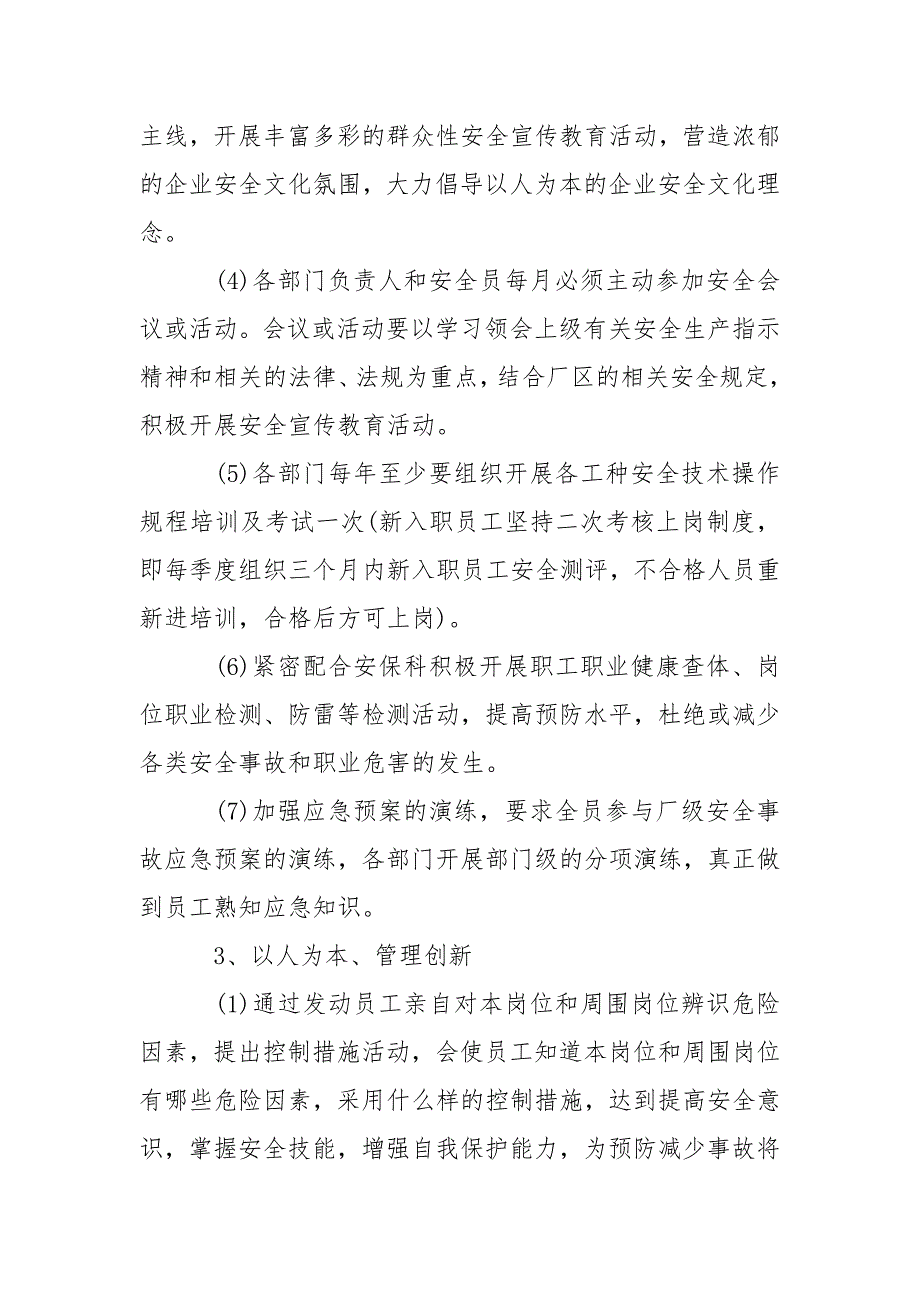 主线，开展丰富多彩的群众性安全宣传教育活动，营造浓郁
的企业安全文化氛围，大力倡导以人为本的企业安全文化理
念。
(4)各部门负责人和安全员每月必须主动参加安全会
议或活动。会议或活动要以学习领会上级有关安全生产指示
精神和相关的法律、法规为重点，结合厂区的相关安全规定，
积极开展安全宣传教育活动。
(5)各部门每年至少要组织开展各工种安全技术操作
规程培训及考试一次(新入职员工坚持二次考核上岗制度，
即每季度组织三个月内新入职员工安全测评，不合格人员重
新进培训，合格后方可上岗)。
(6)紧密配合安保科积极开展职工职业健康查体、岗
位职业检测、防雷等检测活动，提高预防水平，杜绝或减少
各类安全事故和职业危害的发生。
(7)加强应急预案的演练，要求全员参与厂级安全事
故应急预案的演练，各部门开展部门级的分项演练，真正做
到员工熟知应急知识。
3、以人为本、管理创新
(1)通过发动员工亲自对本岗位和周围岗位辨识危险
因素，提出控制措施活动，会使员工知道本岗位和周围岗位
有哪些危险因素，采用什么样的控制措施，达到提高安全意
识，掌握安全技能，增强自我保护能力，为预防减少事故将